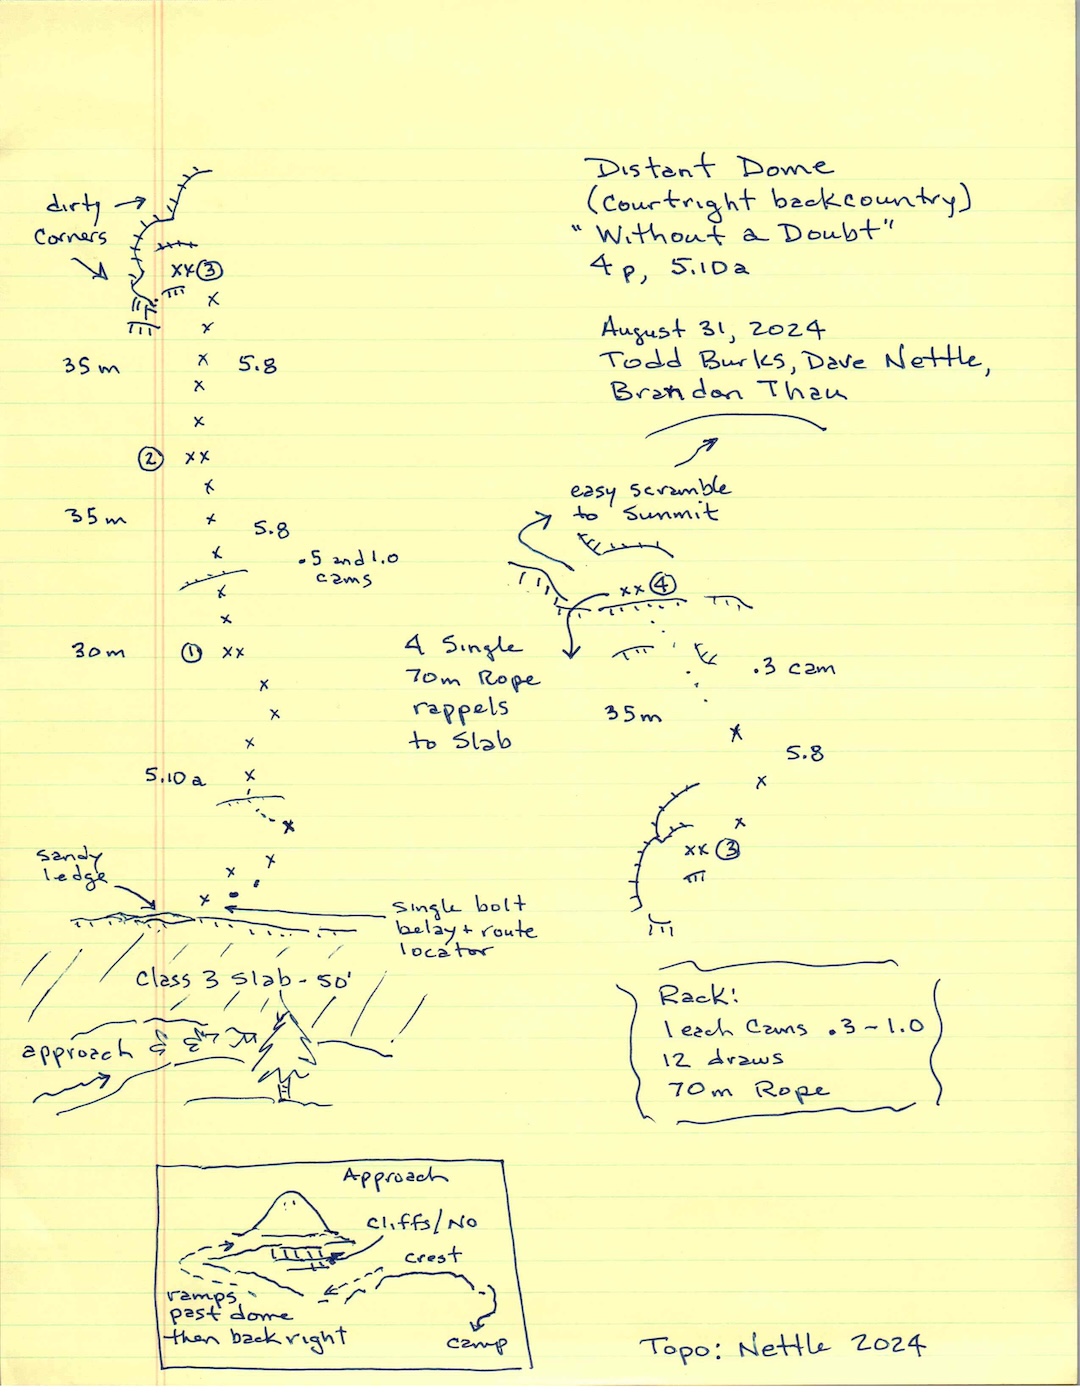 Distant Dome
(Courtright backcountry)
"Without a Doubt"
4p, 5.10a
August 31, 2024
Todd Burks, Dave Nettle,
Brandon Thau
dirty
corners
xx③
35m
5.8
② xx
35m
5.8
.5 and 1.0
cams
30m
① xx
5.10a
sandy
ledge
single bolt
belay + route
locator
Class 3 Slab - 50'
approach
easy scramble
to Summit
xx④
4 Single
70m Rope
rappels
to Slab
.3 cam
35m
5.8
xx③
Rack:
1 each Cams .3-1.0
12 draws
70m Rope
Approach
Cliffs/No
crest
ramps
past dome
then back right
camp
Topo: Nettle 2024